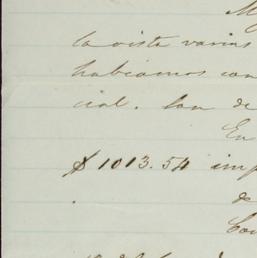 la vista varias
habiamos con
cial. Con de
En
$1013.54 imp
de
Con